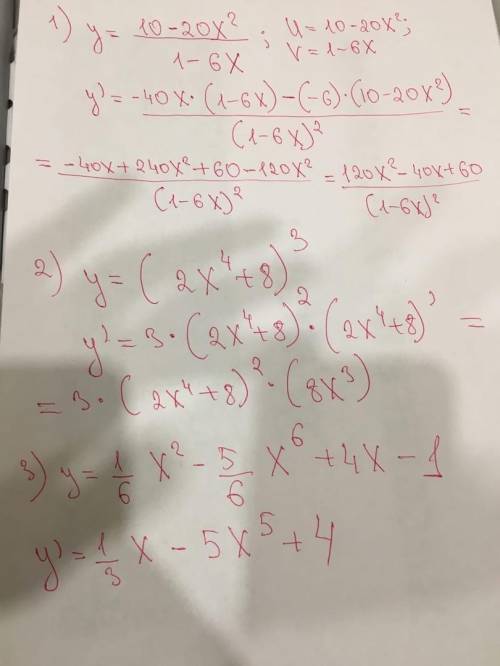 1) y = (10-20x²)/(1-6x) ; U = 10-20x²;
V = 1-6x
y' = (-40x·(1-6x)-(-6)·(10-20x²))/((1-6x)²) =
= (-40x+240x²+60-120x²)/((1-6x)²) = (120x²-40x+60)/((1-6x)²)
2) y = (2x⁴+8)³
y' = 3·(2x⁴+8)²·(2x⁴+8)' =
= 3·(2x⁴+8)²·(8x³)
3) y = 1/6 x² - 5/6 x⁶ + 4x - 1
y' = 1/3 x - 5x⁵ + 4